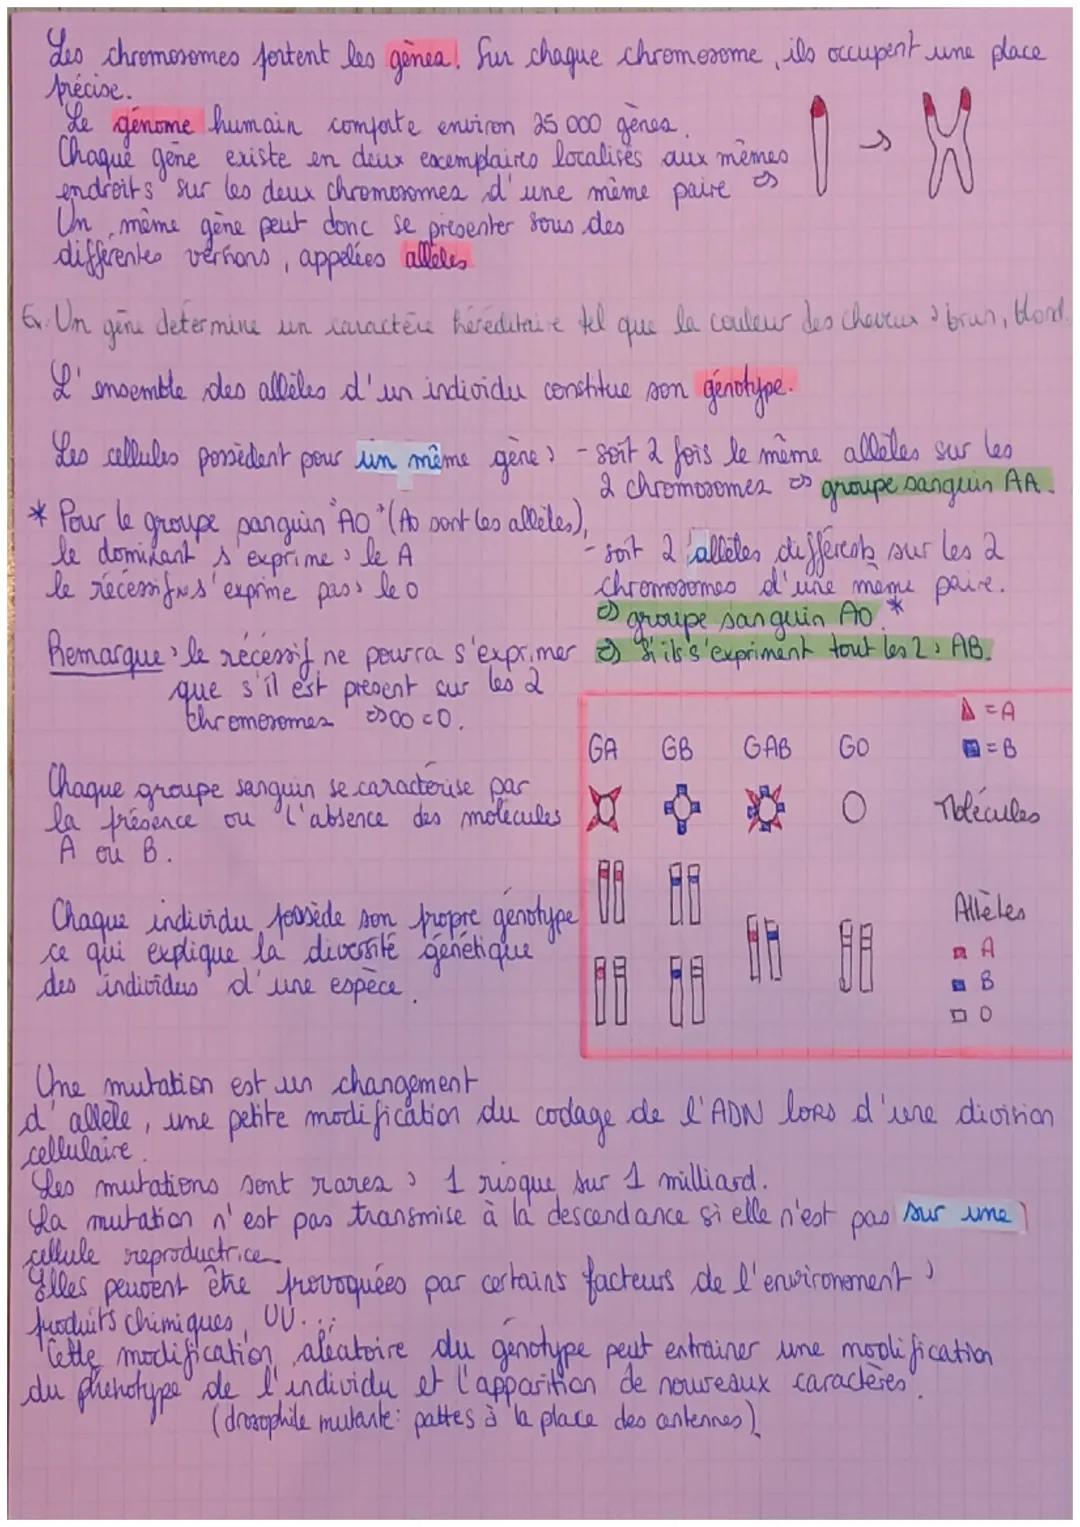 Les chromosomes portent les gènes. Sur chaque chromosome, ils occupent une place
précise.
Le génome humain comporte environ 25 000 gènes.
Chaque gène existe en deux exemplaires localisés aux mêmes
endroits sur les deux chromosomes d'une même paire =>
Un même gène peut donc se présenter sous des
différentes versions, appelées allèles
Ex: Un gène détermine un caractère héréditaire tel que la couleur des cheveux : brun, blond.
L'ensemble des allèles d'un individu constitue son génotype.
Les cellules possèdent pour un même gène : - soit 2 fois le même allèles sur les
2 chromosomes => groupe sanguin AA.
* Pour le groupe sanguin "AO" (AO sont les allèles),
le dominant s'exprime : le A
le récessif ne s'exprime pas : le O
- soit 2 allèles différents sur les 2
chromosomes d'une même paire.
=> groupe sanguin AO.*
=> S'ils s'expriment tout les 2 : AB.
Remarque : le récessif ne pourra s'exprimer
que s'il est présent sur les 2
chromosomes => OO = O.
Chaque groupe sanguin se caractérise par
la présence ou l'absence des molécules
A ou B.
Chaque individu possède son propre génotype
ce qui explique la diversité génétique
des individus d'une espèce.
= A
GA GB GAB GO = B
Molécules
Allèles
A
B
O
Une mutation est un changement
d'allèle, une petite modification du codage de l'ADN lors d'une division
cellulaire.
Les mutations sont rares : 1 risque sur 1 milliard.
La mutation n'est pas transmise à la descendance si elle n'est pas sur une
cellule reproductrice
Elles peuvent être provoquées par certains facteurs de l'environnement :
produits chimiques, UV...
Cette modification aléatoire du génotype peut entrainer une modification
du phénotype de l'individu et l'apparition de nouveaux caractères.
(drosophile mutante: pattes à la place des antennes)